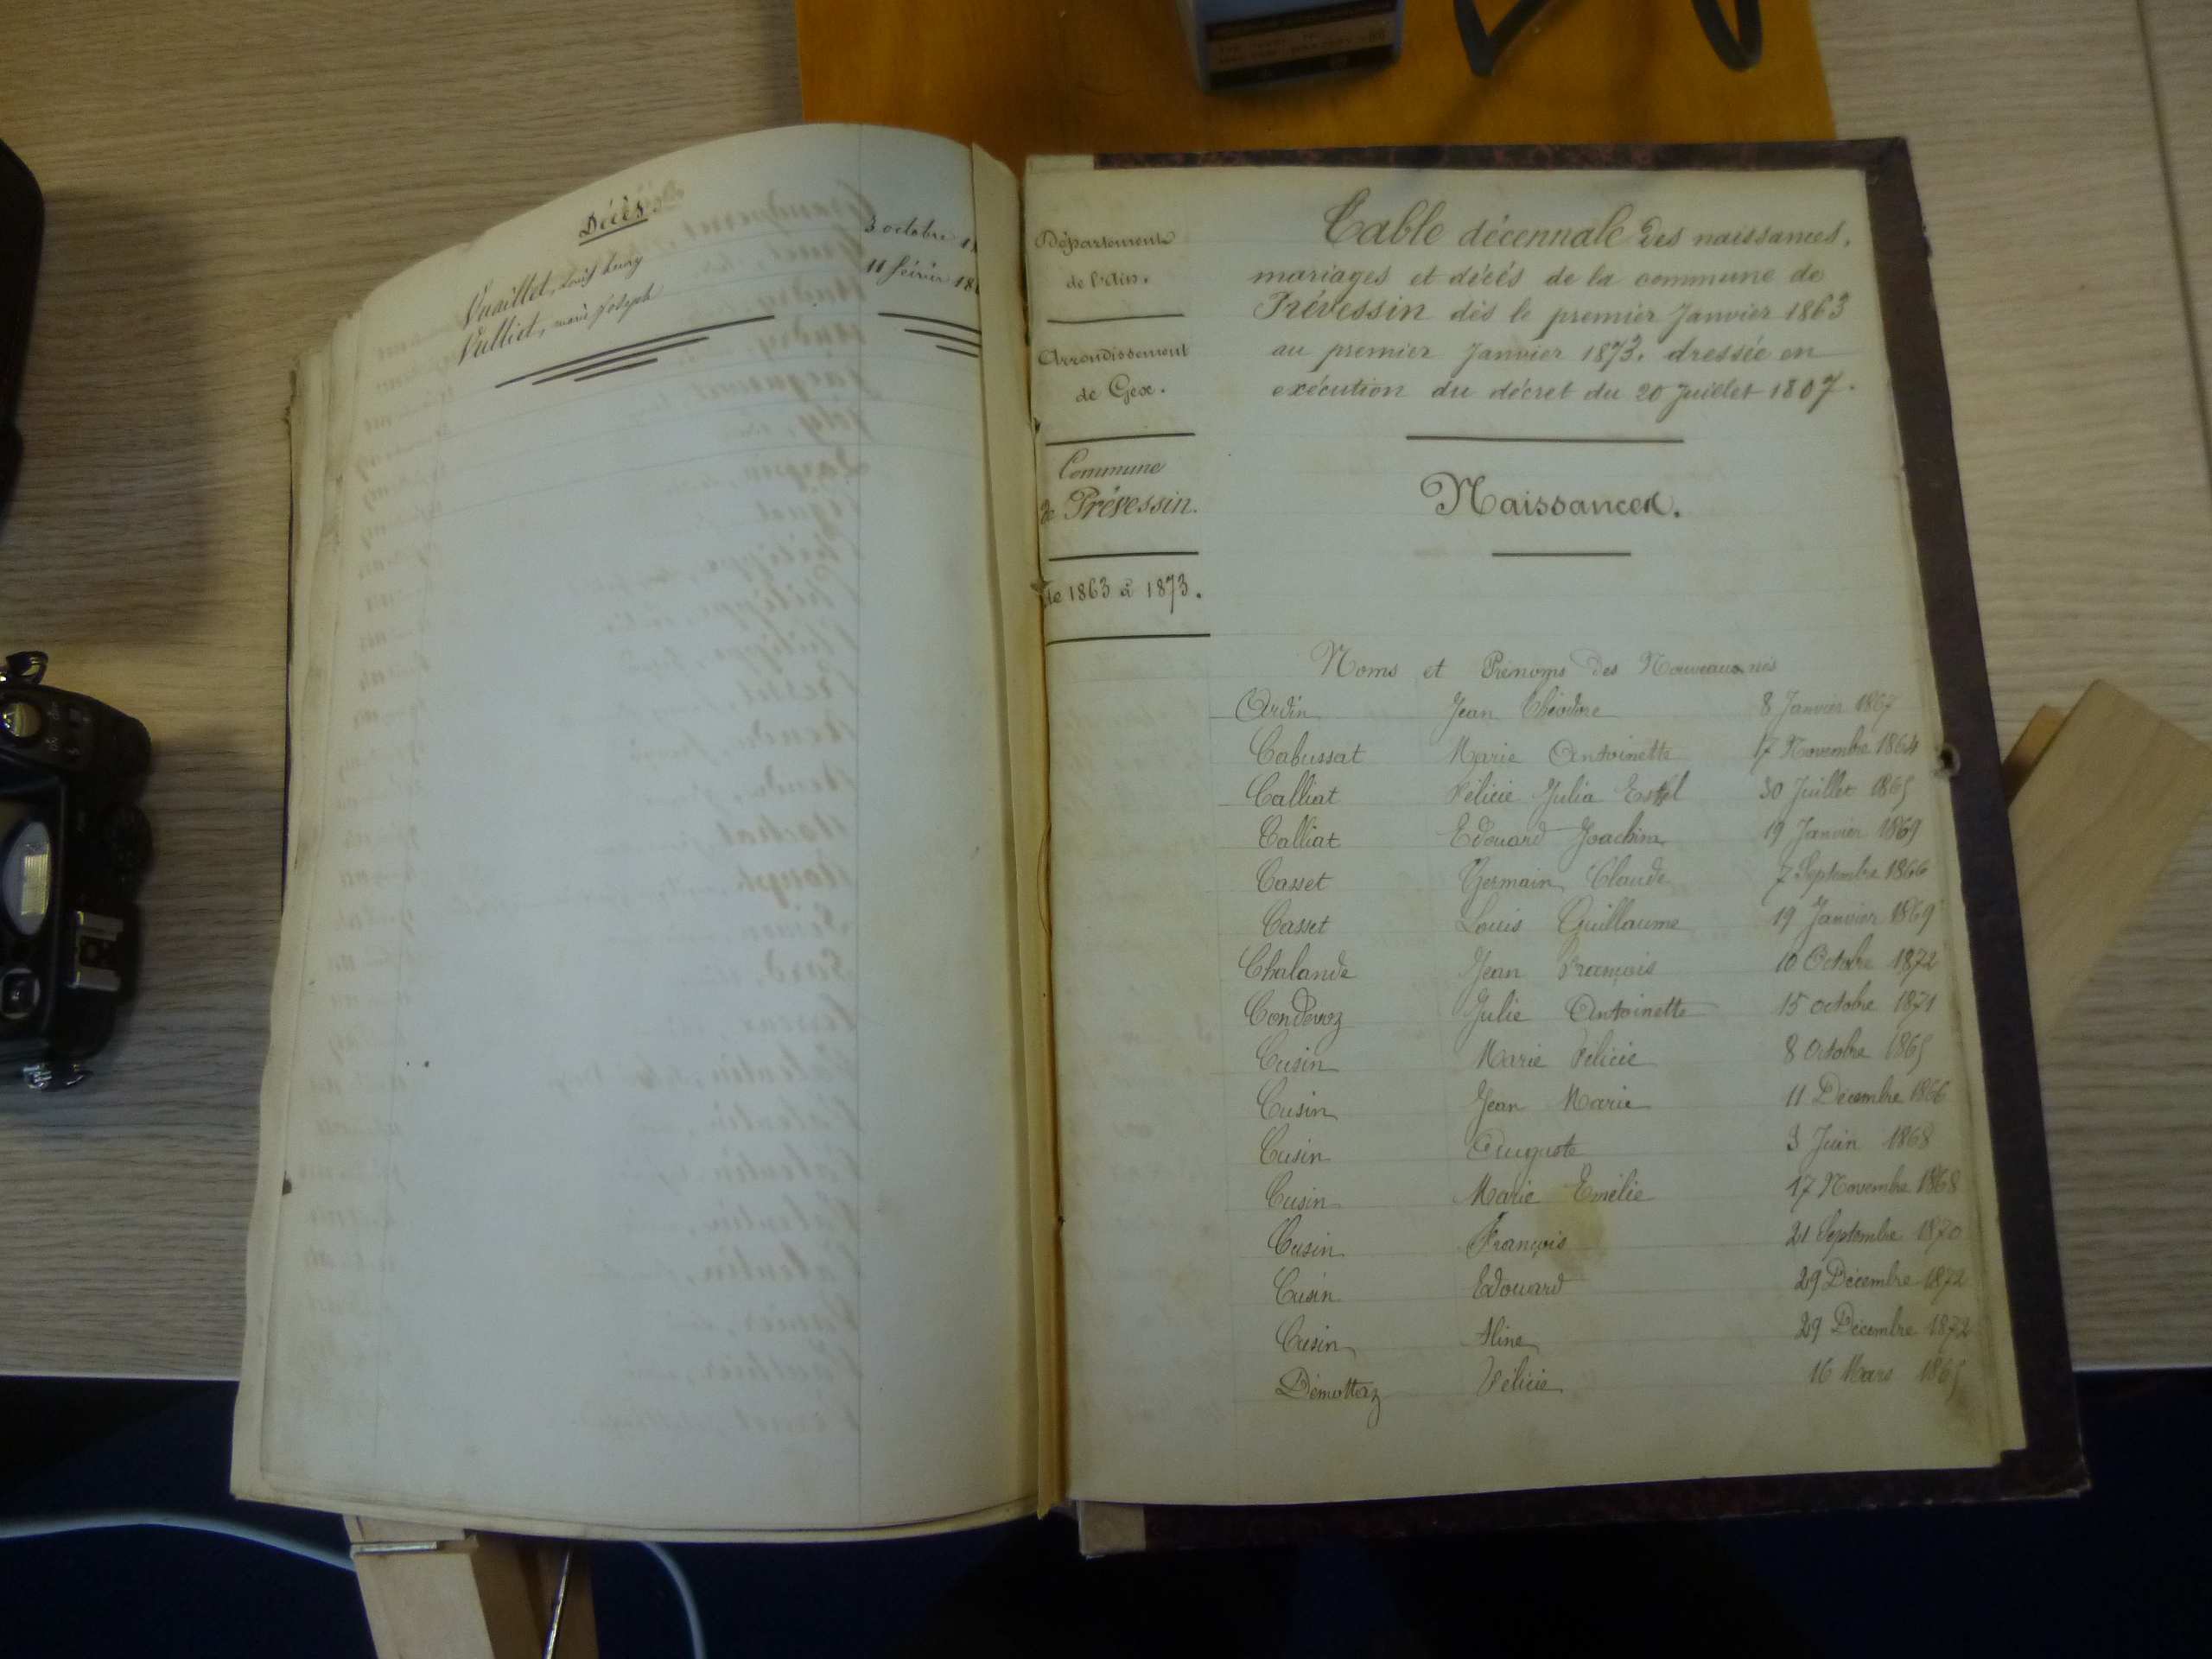 Décès
Vuaillet, Louis Henry 3 octobre
Vulliet, marie Joseph 11 février
Département
de l'Ain.
Arrondissement
de Gex.
Commune
de Prévessin.
de 1863 à 1873.
Table décennale des naissances,
mariages et décès de la commune de
Prévessin dès le premier Janvier 1863
au premier Janvier 1873. dressée en
exécution du décret du 20 Juillet 1807.
Naissances.
Noms et Prénoms des Nouveaux nés
Ardin Jean Théodore 8 Janvier 1867
Cabussat Marie Antoinette 17 Novembre 1864
Calliat Félicie Julia 30 Juillet 1865
Calliat Edouard Joachim 19 Janvier 1869
Casset Germain Claude 7 Septembre 1866
Casset Louis Guillaume 19 Janvier 1869
Chalande Jean François 10 Octobre 1872
Condevoz Julie Antoinette 15 octobre 1871
Cusin Marie Félicie 8 Octobre 1865
Cusin Jean Marie 11 Décembre 1866
Cusin Auguste 3 Juin 1868
Cusin Marie Emélie 17 Novembre 1868
Cusin François 21 Septembre 1870
Cusin Edouard 29 Décembre 1872
Cusin Aline 29 Décembre 1872
Démottaz Félicie 16 Mars 1865